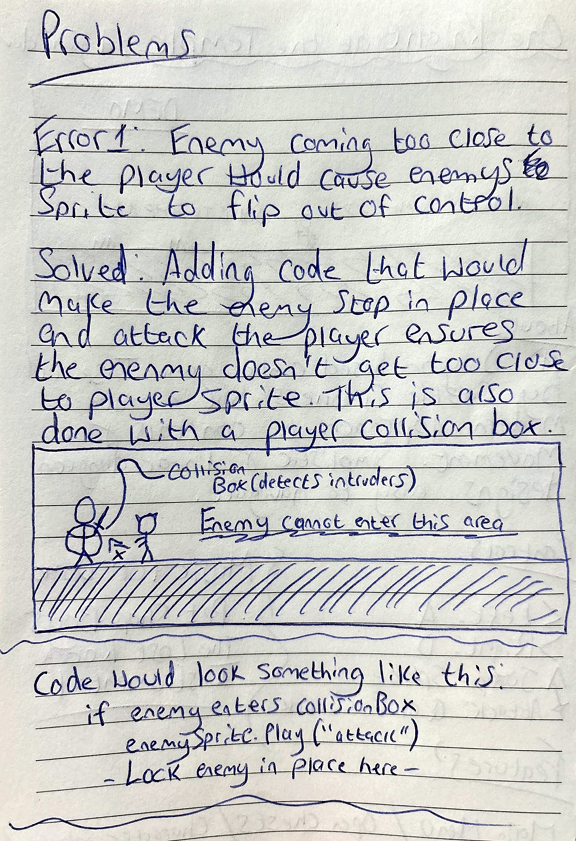 Problems
Error 1: Enemy coming too close to
the player would cause enemys
Sprite to flip out of control.
Solved: Adding code that would
make the enemy stop in place
and attack the player ensures
the enenmy doesn't get too close
to player sprite. This is also
done with a player collision box.
Collision
Box (detects intruders)
Enemy cannot enter this area
Code would look something like this:
if enemy enters collisionBox
enemySprite.Play ("attack")
- Lock enemy in place here -